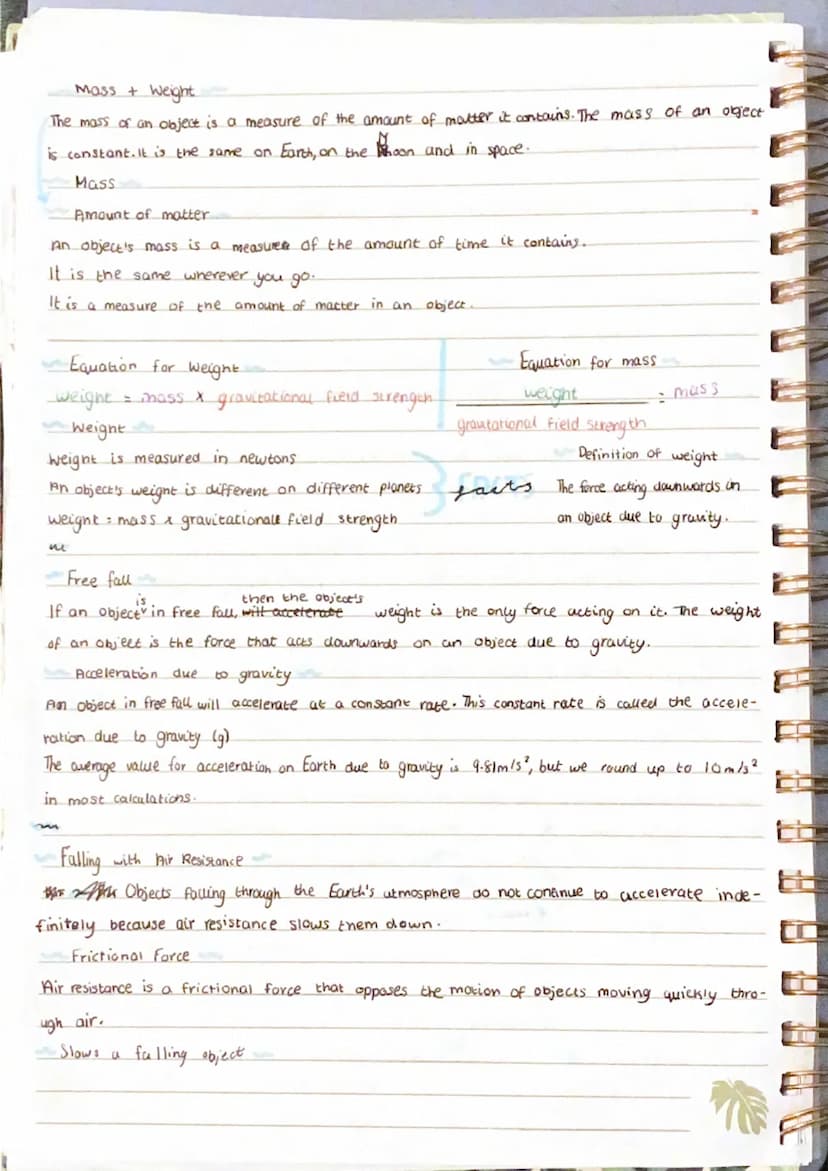 Mass + Weight
The mass of an object is a measure of the amount of matter it contains. The mass of an object
is constant. It is the same on Earth, on the Moon and in space.
Mass
Amount of matter
An object's mass is a measure of the amount of time it contains.
It is the same wherever you go.
It is a measure of the amount of matter in an object.
Equation for Weight
weight = mass x gravitational field strength
Equation for mass
weight = mass
gravitational field strength
Weight
Weight is measured in newtons
An object's weight is different on different planets
weight = mass x gravitationall field strength
facts
Definition of weight
The force acting downwards on
an object due to gravity.
Free fall
If an object is in free fall, will accelerate then the object's weight is the only force acting on it. The weight
of an object is the force that acts downwards on an object due to gravity.
Acceleration due to gravity
An object in free fall will accelerate at a constant rate. This constant rate is called the accele-
ration due to gravity (g)
The average value for acceleration on Earth due to gravity is 9.81m/s², but we round up to 10m/s²
in most calculations.
Falling with Air Resistance
Objects falling through the Earth's atmosphere do not continue to accelerate inde-
finitely because air resistance slows them down.
Frictional Force
Air resistance is a frictional force that opposes the motion of objects moving quickly thro-
ugh air.
Slows a falling object